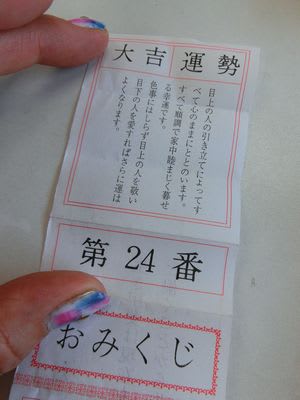 大吉 運勢
目上の人の引き立てによってす
べて心のままにととのいます。
すべて順調で家中睦まじく暮せ
る幸運です。
色事にはしらず目上の人を敬い
目下の人を愛すればさらに運は
よくなります。
第24番
おみくじ